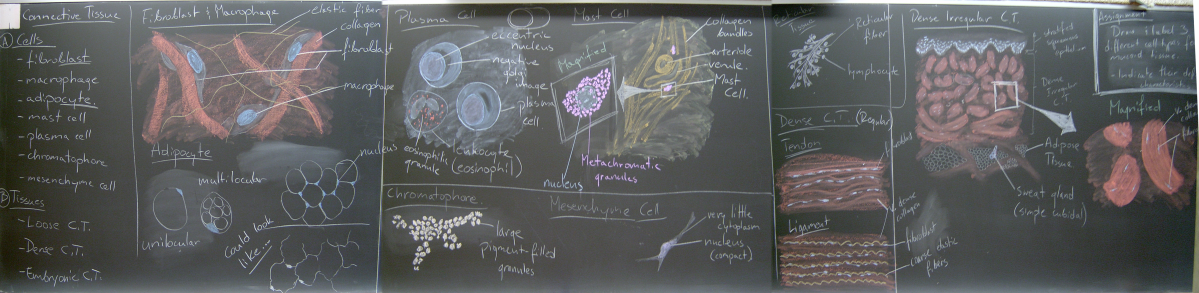 Connective Tissue
(A) Cells
- fibroblast
- macrophage
- adipocyte
- mast cell
- plasma cell
- chromatophore
- mesenchyme cell
(B) Tissues
- Loose C.T.
- Dense C.T.
- Embryonic C.T.
Fibroblast & Macrophage
elastic fiber
collagen
fibroblast
macrophage
Adipocyte
nucleus
multilocular
unilocular
Could look
like...
Plasma Cell
eccentric
nucleus
negative
golgi
image
plasma
cell
eosinophilic
granule
leukocyte
(eosinophil)
Mast Cell
Magnified
collagen
bundles
arteriole
venule
Mast
Cell.
Metachromatic
granules
nucleus
Chromatophore
large
pigment-filled
granules
Mesenchyme Cell
very little
cytoplasm
nucleus
(compact)
Reticular
Tissue
Reticular
fiber
lymphocyte
Dense C.T. (Regular)
Tendon
fibroblast
dense
collagen
Ligament
fibroblast
coarse elastic
fibers
Dense Irregular C.T.
stratified
squamous
epithelium
Dense
Irregular
C.T.
Adipose
Tissue
Sweat gland
(simple tubular)
Assignment
different cell types
Magnified